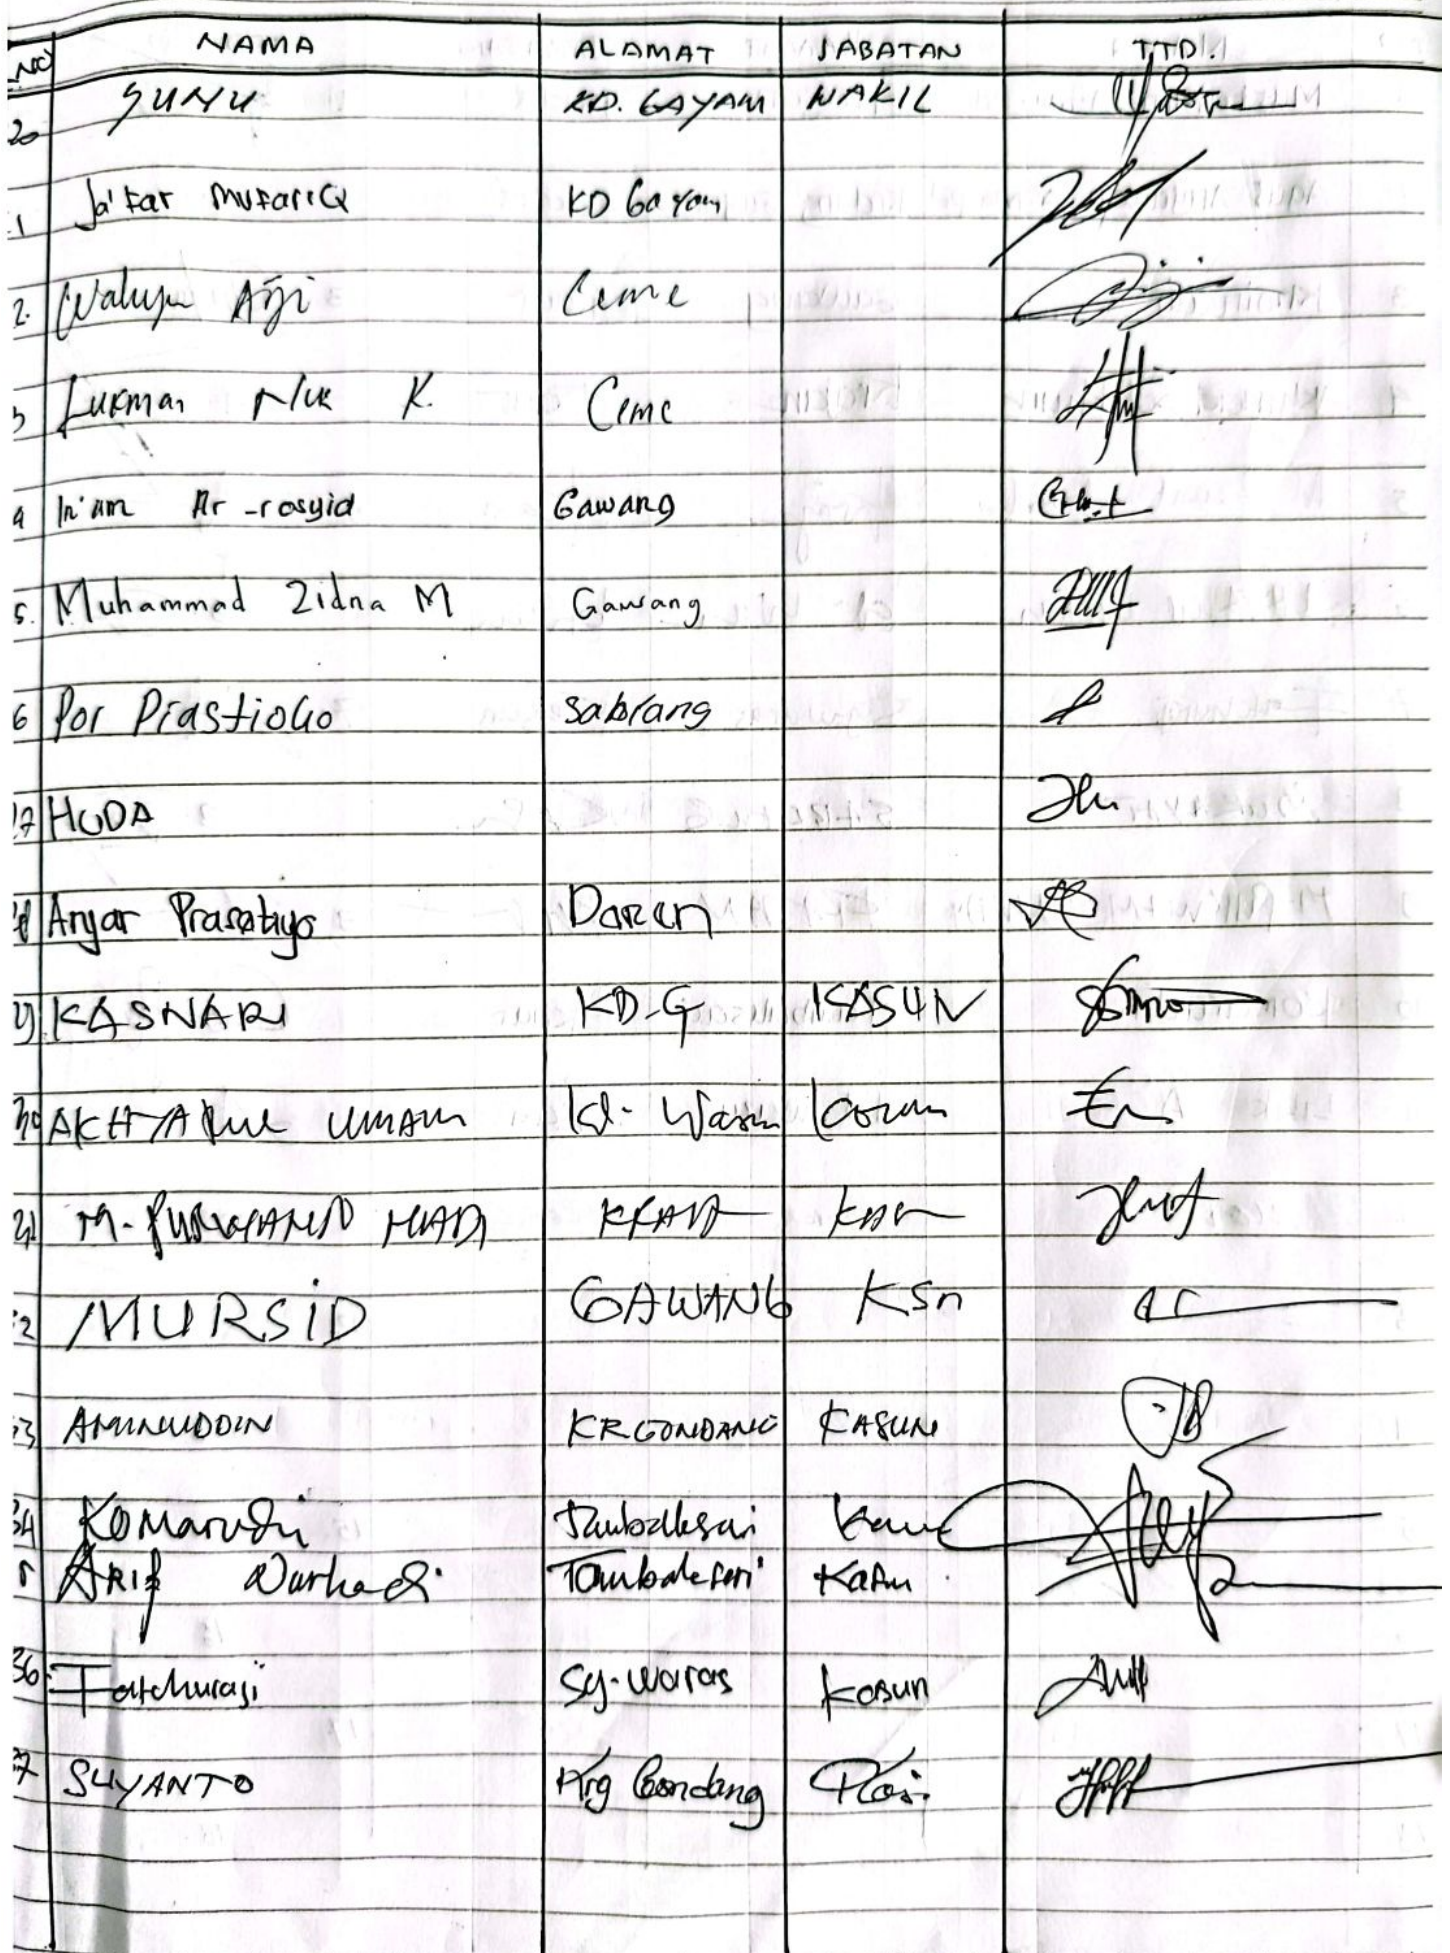 NO NAMA ALAMAT JABATAN TTD.
20 SUNU KD. GAYAM WAKIL
1 Ja'far MUFarriQ KD Gayam
2. Waluyo Aji Ceme
3 Lukman Nur K. Ceme
4 In'am Ar-rosyid Gawang
5. Muhammad Zidna M Gawang
6 Por Prastiono Sabrang
27 HUDA
28 Anjar Prasetiyo Daren
29. KASNARI KD-G KASUN
30 AKHYARUL UMAM Kd. Kasun
31 M. PURWANTO HADI
32 MURSID GAWANG KSn
33 AMINUDDIN KRGONDANG KASUN
34 Komarudin Tambaksari
5 ARIF Nurhadi Tambaksari Kasun
36. Fatchuraji Sg. waras Kasun
37 SUYANTO Krg Gondang